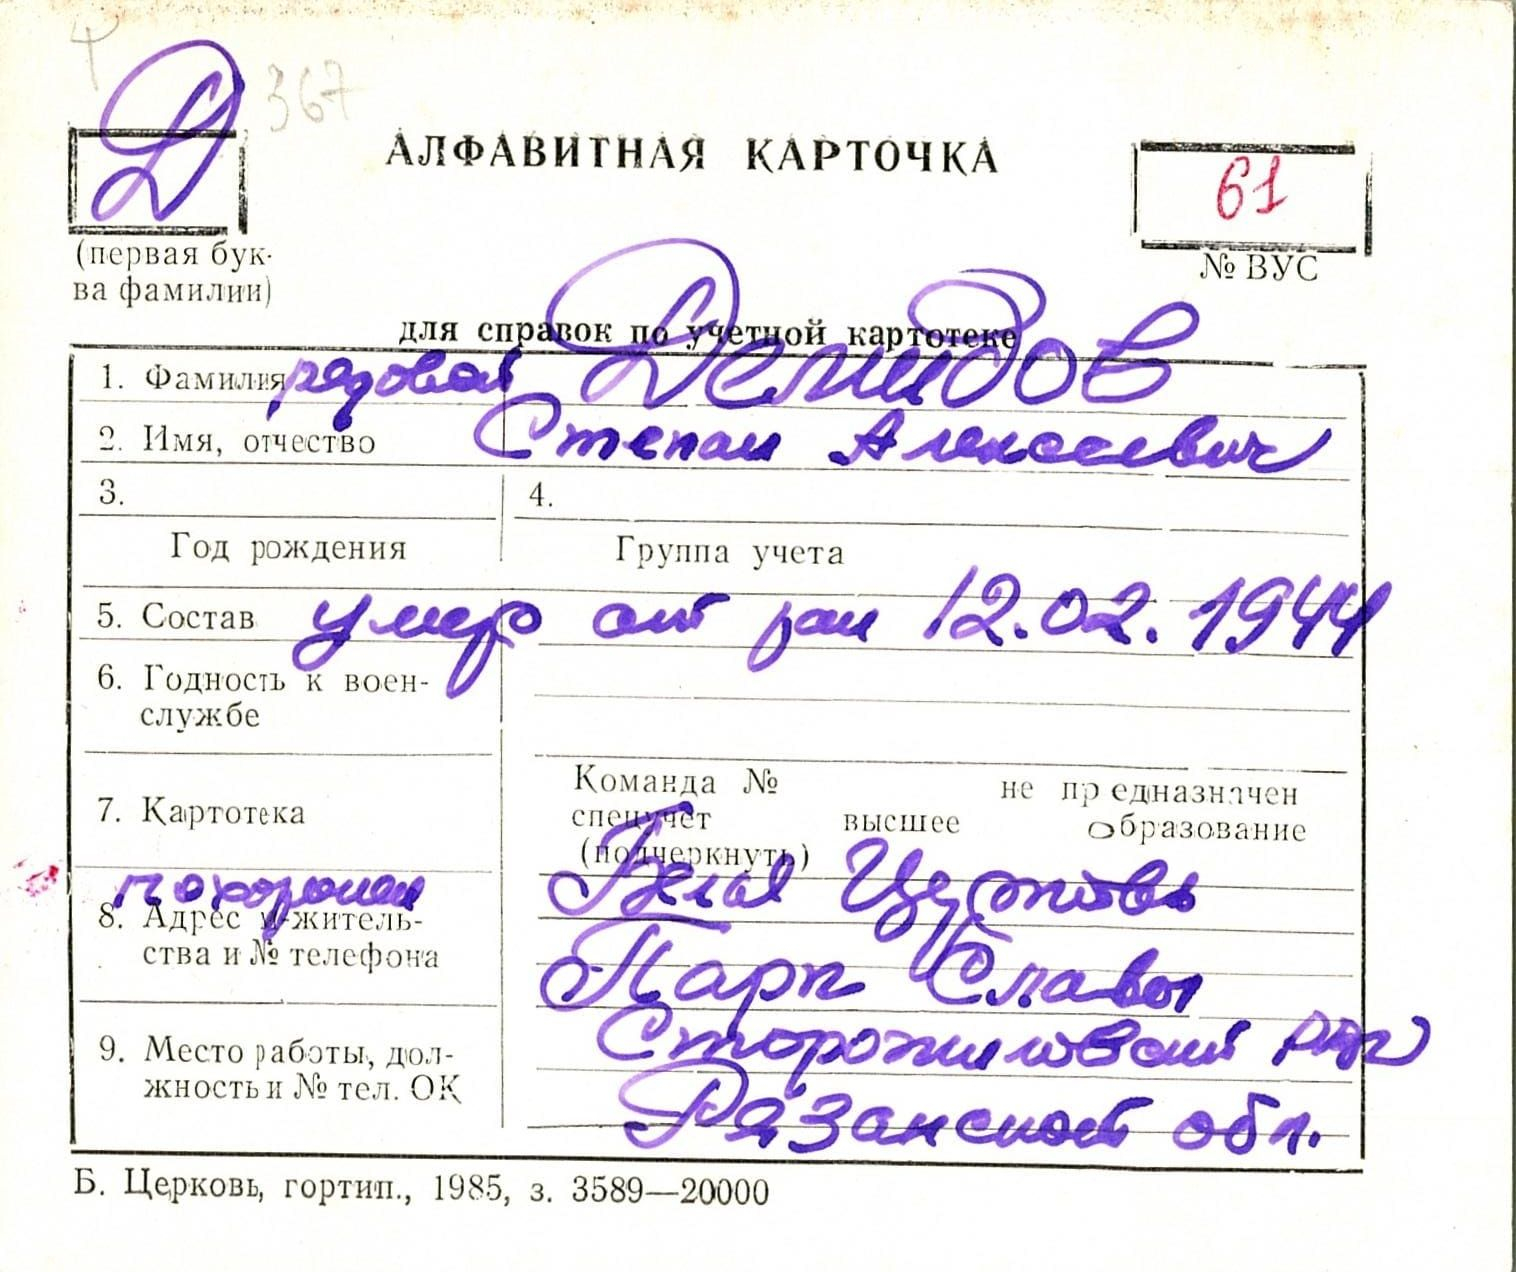 Д 367
АЛФАВИТНАЯ КАРТОЧКА
61
(первая бук-
ва фамилии)
№ ВУС
для справок по учетной картотеке
1. Фамилия рядовой Демидов
2. Имя, отчество Степан Алексеевич
3. 4.
Год рождения Группа учета
5. Состав умер от ран 12.02.1944
6. Годность к воен-
службе
Команда № не предназначен
7. Картотека спецучет высшее образование
(подчеркнуть)
похоронен Белая Церковь
8. Адрес м-житель-
ства и № телефона Парк Славы
Сторожиловский р-н
9. Место работы, дол-
жность и № тел. ОК Рязанской обл.
Б. Церковь, гортип., 1985, з. 3589—20000